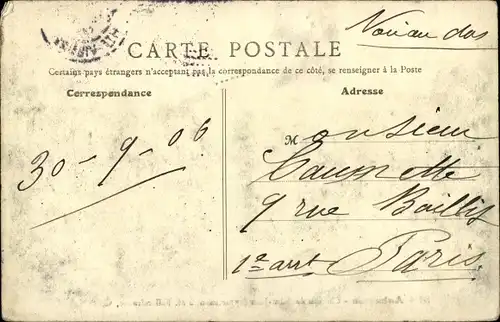 Voir au dos
CARTE POSTALE
Certains pays étrangers n'acceptant pas la correspondance de ce côté, se renseigner à la Poste
Correspondance
Adresse
30-9-06
Monsieur
9 rue Baillif
1er arrt Paris